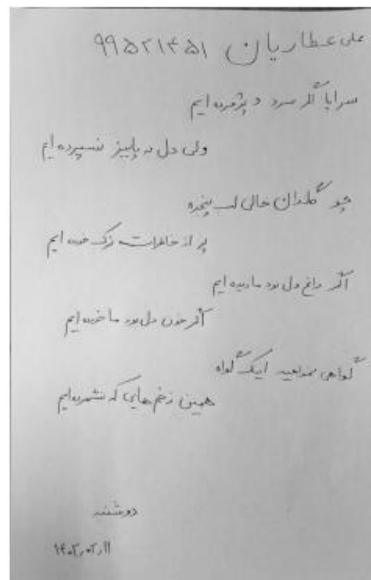 علی عطاریان ۹۹۵۲۱۴۵۱
سراپا اگر سرد و پژمرده ایم
ولی دل به پاییز نسپرده ایم
چو گلدان خالی لب پنجره
پر از خاطرات ترک خورده ایم
اگر داغ دل بود ما دیده ایم
اگر خون دل بود ما خورده ایم
گواهی بخواهید اینک گواه
همین زخم هایی که نشمرده ایم
دوشنبه
۱۴۰۲,۰۲,۱۱